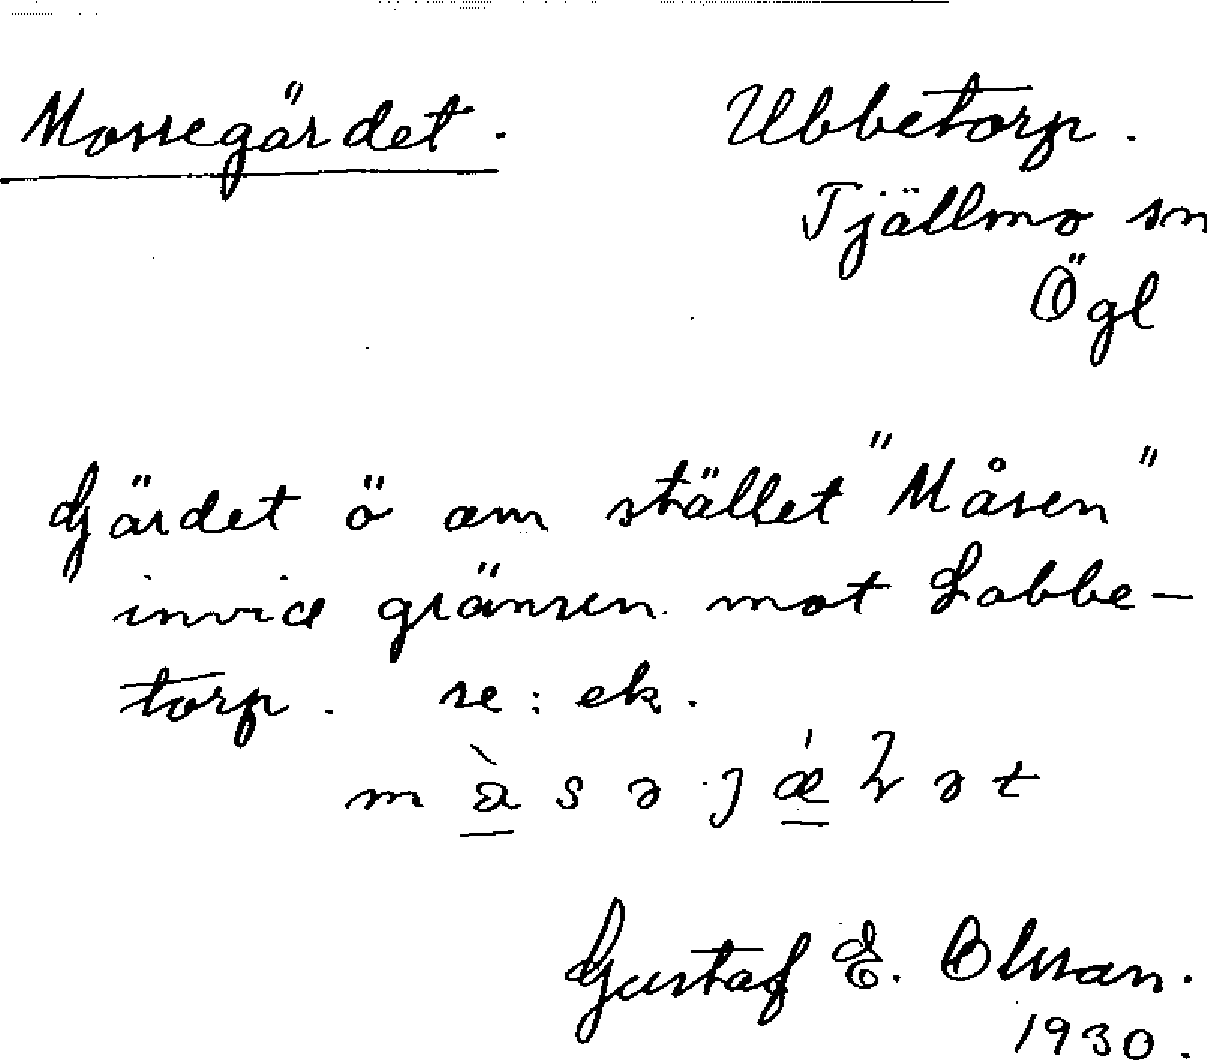 Mossegärdet. Ubbetorp.
Tjällmo sn
Ögl
Gärdet ö om stället "Måsen"
invid gränsen mot Lobbe-
torp. se: ek.
Gustaf E. Olsson.
1930.